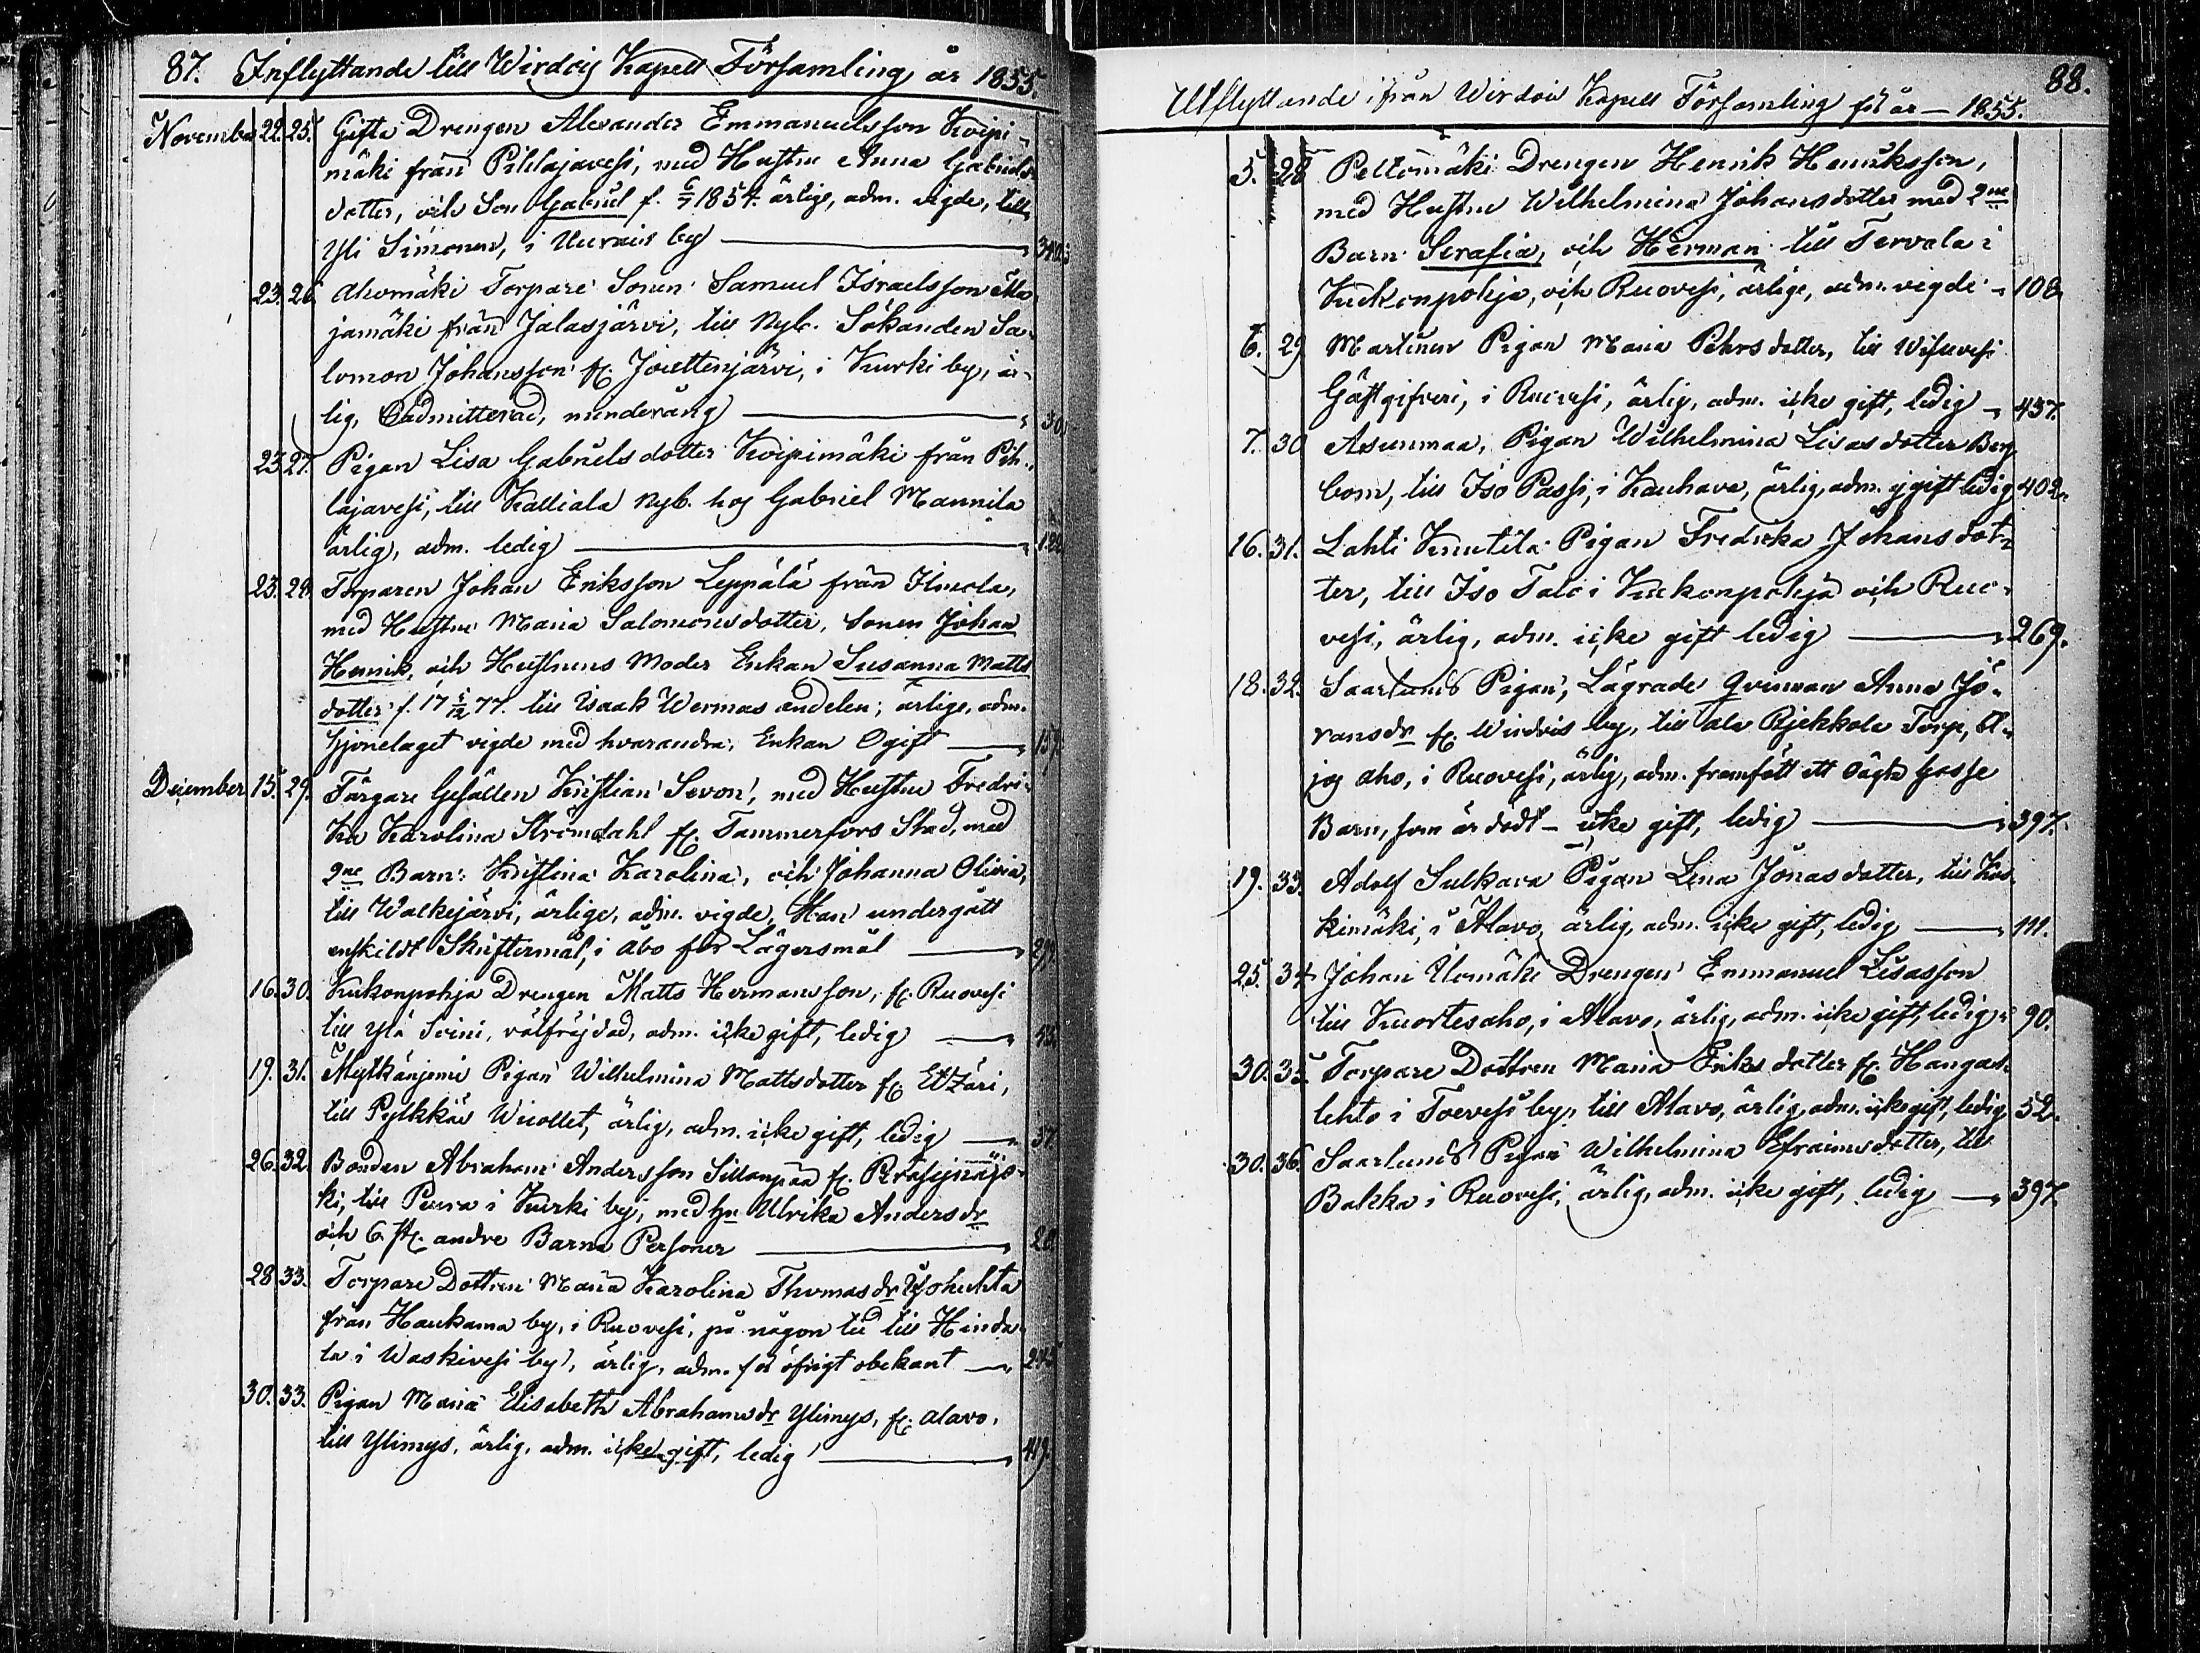 87. Inflyttande till Wirdois Kapell Församling år 1855.
November 22. 25. Gifta Drengen Alexander Emmanuelsson Koipi-
mäki från Pihlajavesi, med Hustru Anna Gabriels
dotter, och Son Gabriel f. 6/7 1854. ärlige, adm. vigde, till
Yli Simonen, i Uurais by 340.
23. 26. Ahomäki Torpare Sonen Samuel Israelsson Ma
jamäki från Jalasjärvi, till Nyb. Sökanden Sa-
lomon Johansson fr. Jouttenjärvi, i Kurki by, är-
lig, Oadmitterad, minderårig 30.
23. 27. Pigan Lisa Gabrielsdotter Koipimäki från Pih-
lajavesi, till Kalliala Nyb. hos Gabriel Mannila
ärlig, adm. ledig 122.
23. 28. Torparen Johan Eriksson Leppälä från Ilmola,
med Hustru Maria Salomonsdotter, Sonen Johan
Henrik, och Hustruns Moder Enkan Susanna Matts
dotter f. 17 5/12 77. till Isaak Wermas andelen; ärlige, adm.
Hjonelaget vigde med hvarandra, Enkan Ogift 157.
December 15. 29. Färgare Gesällen Kristian Sevon, med Hustru Fredri-
ka Karolina Strömdahl fr. Tammerfors Stad, med
2ne Barn: Kristina Karolina, och Johanna Olivia,
till Walkejärvi, ärlige, adm. vigde, Han undergått
enskildt Skriftermål, i Åbo för Lägersmål 299.
16. 30. Kukonpohja Drengen Matts Hermansson, fr. Ruovesi
till Ylä Soini, välfräjdad, adm. icke gift, ledig 43.
19. 31. Mylkänjemi Pigan Wilhelmina Mattsdotter fr. Etzäri,
till Pylkkäs Wuollet, ärlig, adm. icke gift, ledig 37.
26. 32. Bonden Abraham Andersson Sillanpää fr. Peräseinäjo-
ki, till Peura i Kurki by, med hu Ulrika Andersdr
och 6 st. andre Barna Personer 20.
28. 33. Torpare Dottren Maria Karolina Thomasdr Yohuhta
från Haukama by, i Ruovesi, på någon tid till Hinda
la i Waskivesi by, ärlig, adm. för öfrigt obekant 275.
30. 33. Pigan Maria Elisabeth Abrahamsdr Ylimys, fr. Alavo,
till Ylimys, ärlig, adm. icke gift, ledig 419.
88.
Utflyttande ifrån Wirdois Kapell Församling för år - 1855.
5. 28. Peltomäki Drengen Henrik Henriksson,
med Hustru Wilhelmina Johansdotter med 2ne
Barn Serafia, och Herman till Tervala i
Kukonpohja, och Ruovesi, ärlige, adm. vigde 108.
6. 29. Martinen Pigan Maria Pehrsdotter, till Wisuvesi
Gästgifveri, i Ruovesi, ärlig, adm. icke gift, ledig 437.
7. 30. Asunmaa, Pigan Wilhelmina Lisasdotter Berg
bom, till Iso Passi, i Kauhava, ärlig, adm. ej gift ledig 402.
16. 31. Lahti Knutila Pigan Fredrika Johansdot-
ter, till Iso Talo i Kukonpohja och Ruo-
vesi, ärlig, adm. icke gift ledig 269.
18. 32. Saarlunds Pigan, Lägrade Qvinnan Anna Jö-
ransdr fr. Wirdois by, till Ala Pjekkola Torp,
jos aho, i Ruovesi, ärlig, adm. framfött ett oägta Gosse
Barn, som är dödt - icke gift, ledig 397.
19. 33. Adolf Sulkava Pigan Lena Jonasdotter, till Kos-
kimäki, i Alavo, ärlig, adm. icke gift, ledig 111.
25. 34. Johan Ulomäki Drengen Emmanuel Lisasson
till Kuortesaho, i Alavo, ärlig, adm. icke gift, ledig 90.
30. 35. Torpare Dottren Maria Eriksdotter fr. Hangas
lehto i Toevesi by, till Alavo, ärlig, adm. icke gift, ledig 52.
30. 36. Saarlunds Pigan Wilhelmina Efraimsdotter, till
Bakka i Ruovesi, ärlig, adm. icke gift, ledig 397.